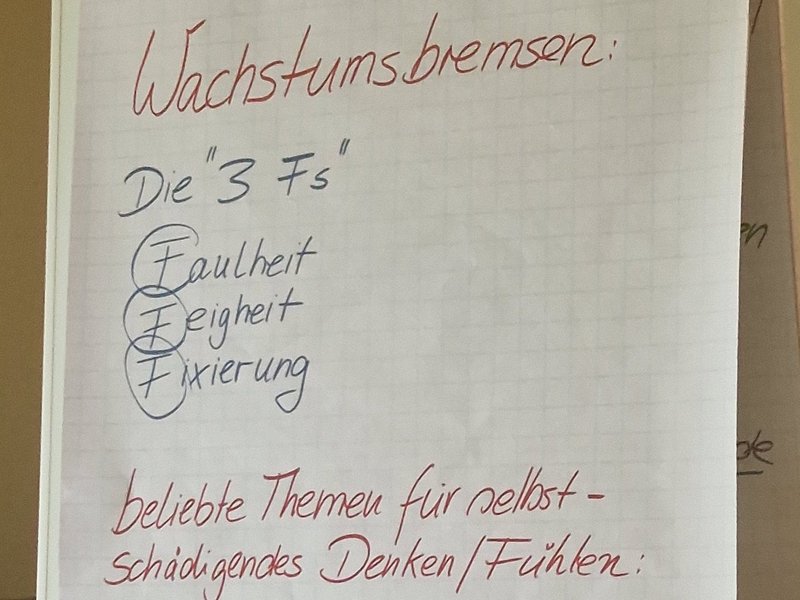 Wachstumsbremsen:
Die "3 Fs"
Faulheit
Feigheit
Fixierung
beliebte Themen für selbst-
schädigendes Denken/Fühlen: